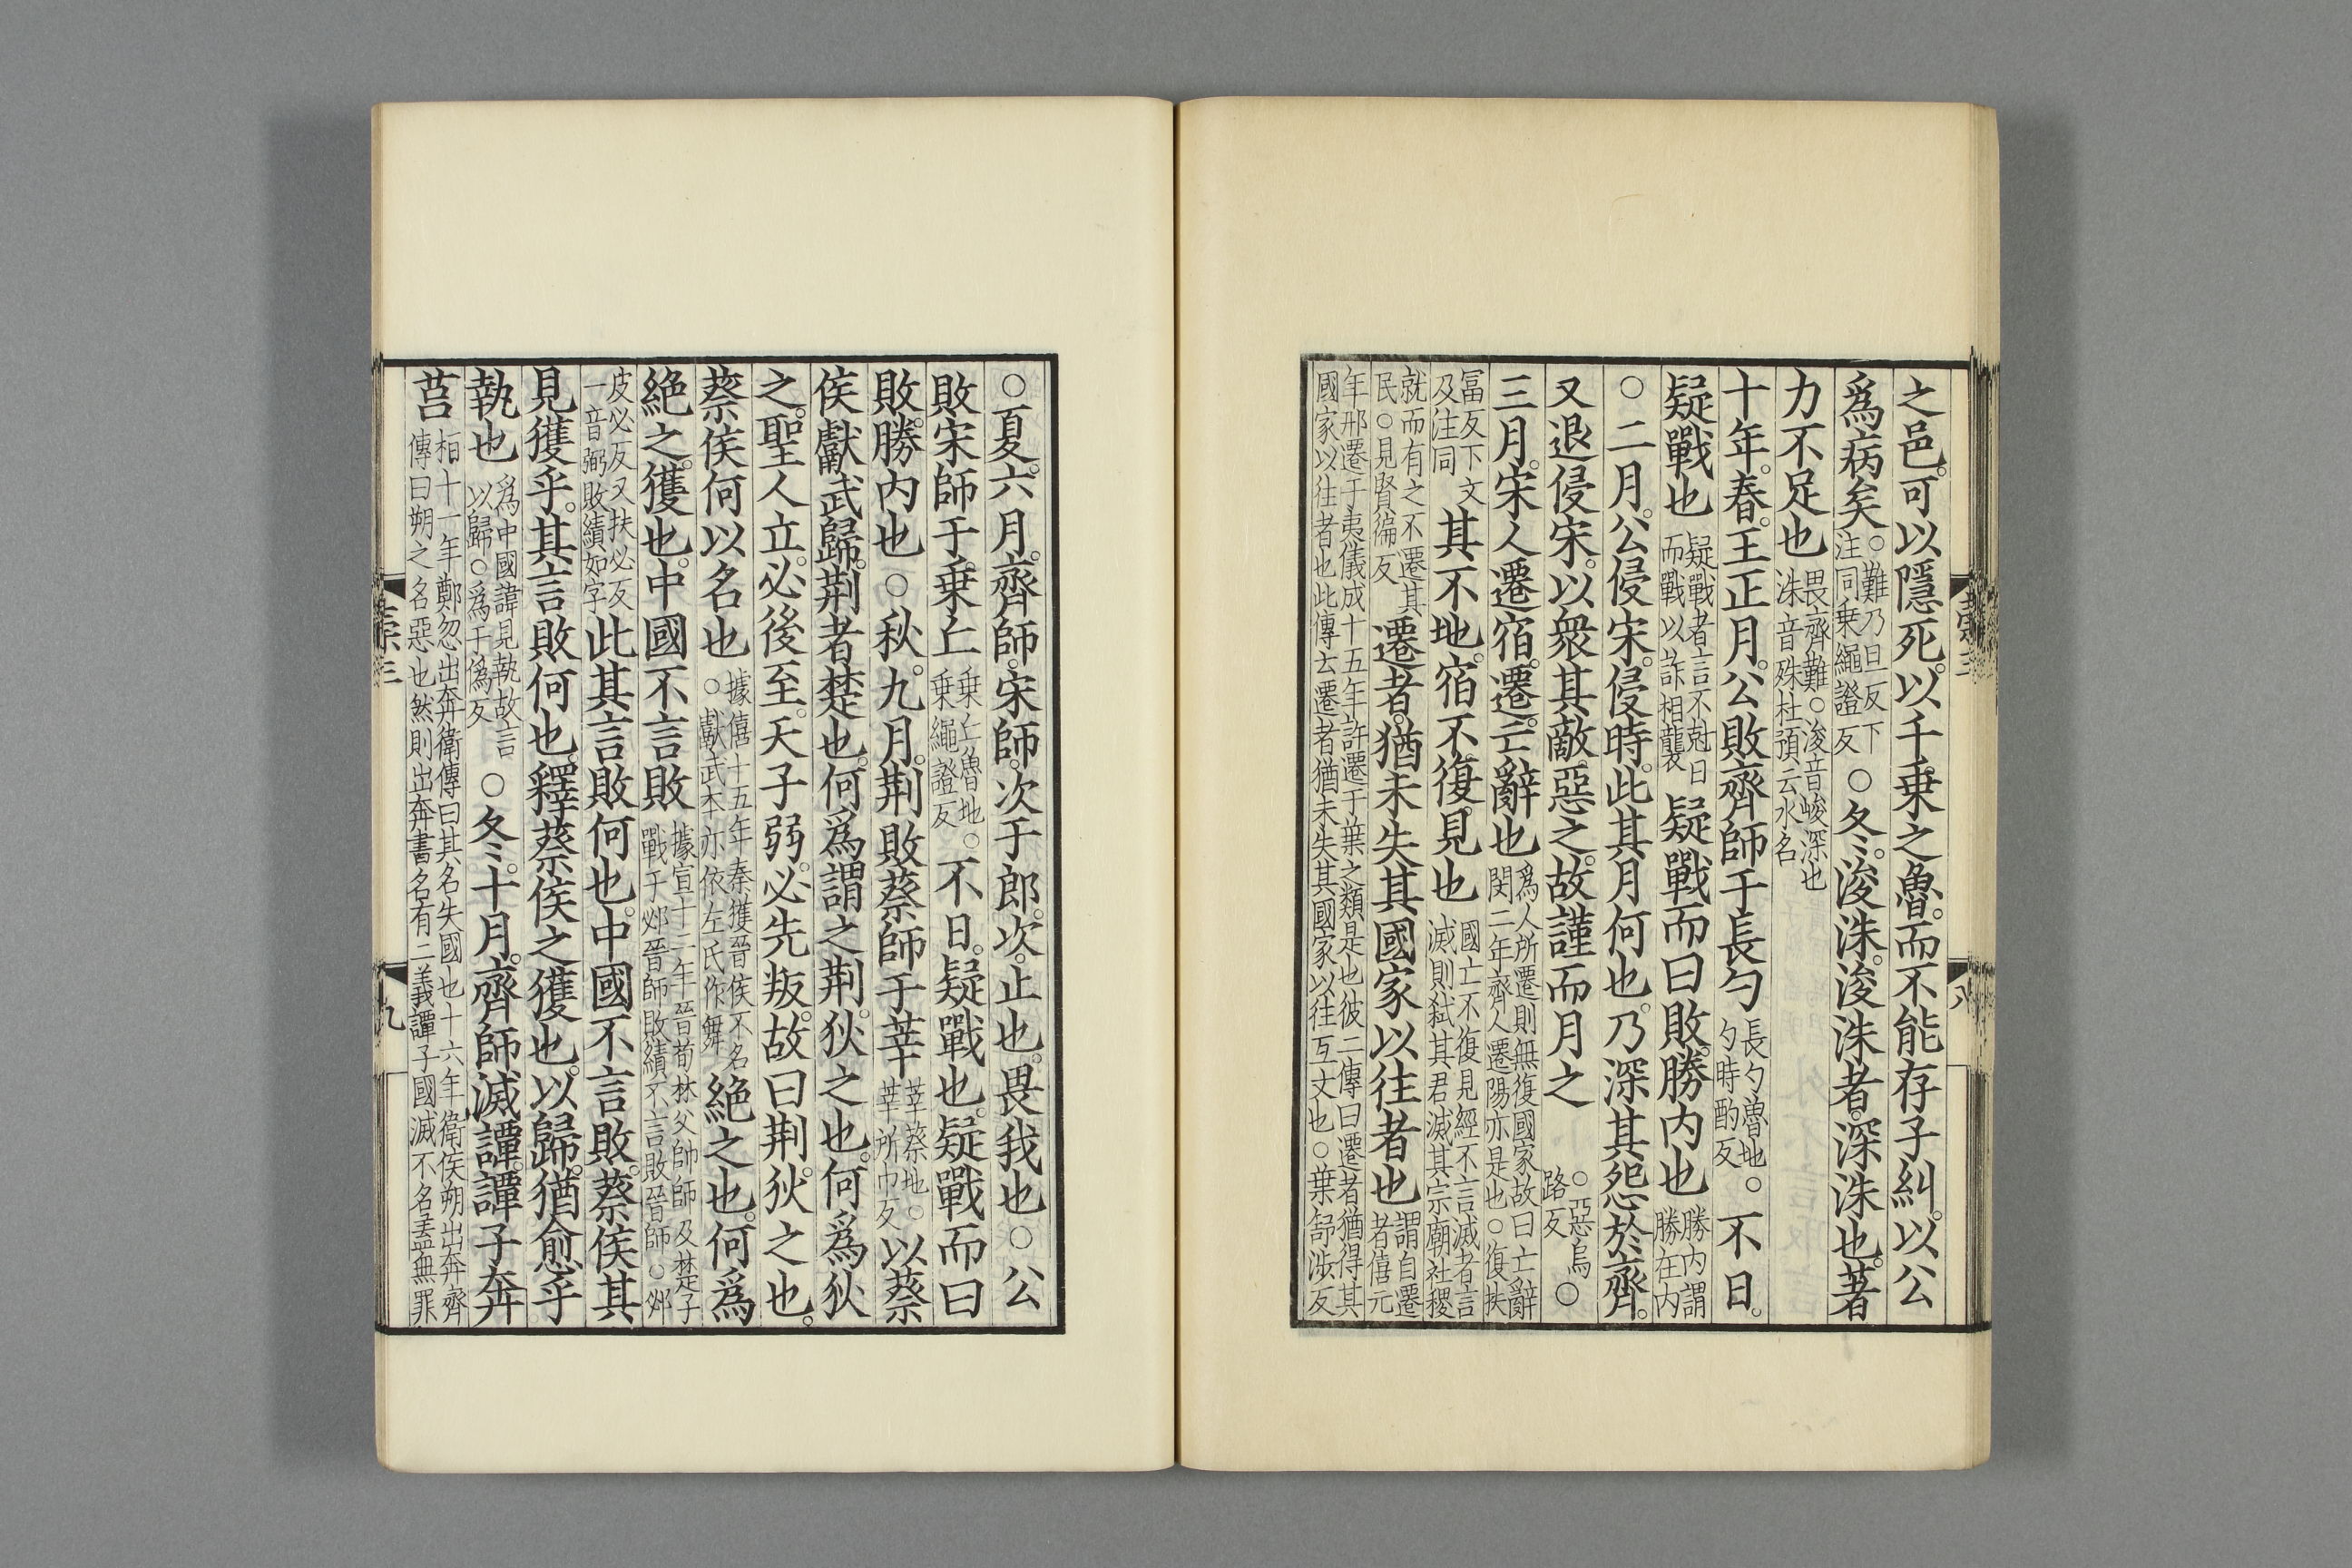 之邑可以隱死以千乗之魯而不能存子糾以公
爲病矣○難乃旦反下注同乗繩證反○冬浚洙浚洙者深洙也著
力不足也畏齊難○浚音峻深也洙音殊杜預云水名
十年春王正月公敗齊師于長勺長勺魯地○勺時酌反不日
疑戰也疑戰者言不剋日而戰以詐相襲疑戰而曰敗勝内也勝内謂勝在内
○二月公侵宋侵時此其月何也乃深其怨於齊
又退侵宋以衆其敵惡之故謹而月之○惡烏路反○
三月宋人遷宿遷亡辭也爲人所遷則無復國家故曰亡辭閔二年齊人遷陽亦是也○復扶
冨反下文及注同其不地宿不復見也國亡不復見經不言滅者言滅則弑其君滅其宗廟社稷
就而有之不遷其民○見賢徧反遷者猶未失其國家以往者也謂自遷者僖元
年邢遷于夷儀成十五年許遷于葉之類是也彼二傳曰遷者猶得其國家以往者也此傳云遷者猶未失其國家以往互文也○葉舒涉反
○夏六月齊師宋師次于郎次止也畏我也○公
敗宋師于乗丘乗丘魯地○乗繩證反不日疑戰也疑戰而曰
敗勝内也○秋九月荆敗蔡師于莘莘蔡地○莘所巾反以蔡
侯獻武歸荆者楚也何爲謂之荆狄之也何爲狄
之聖人立必後至天子弱必先叛故曰荆狄之也
蔡侯何以名也據僖十五年秦獲晉侯不名○獻武本亦依左氏作舞絶之也何爲
絶之獲也中國不言敗據宣十二年晉荀林父帥師及楚子戰于邲晉師敗績不言敗晉師○邲
皮必反又扶必反一音弼敗績如字此其言敗何也中國不言敗蔡侯其
見獲乎其言敗何也釋蔡侯之獲也以歸猶愈乎
執也爲中國諱見執故言以歸○爲于僞反○冬十月齊師滅譚譚子奔
莒桓十一年鄭忽出奔衛傳曰其名失國也十六年衛侯朔出奔齊傳曰朔之名惡也然則出奔書名有二義譚子國滅不名盖無罪